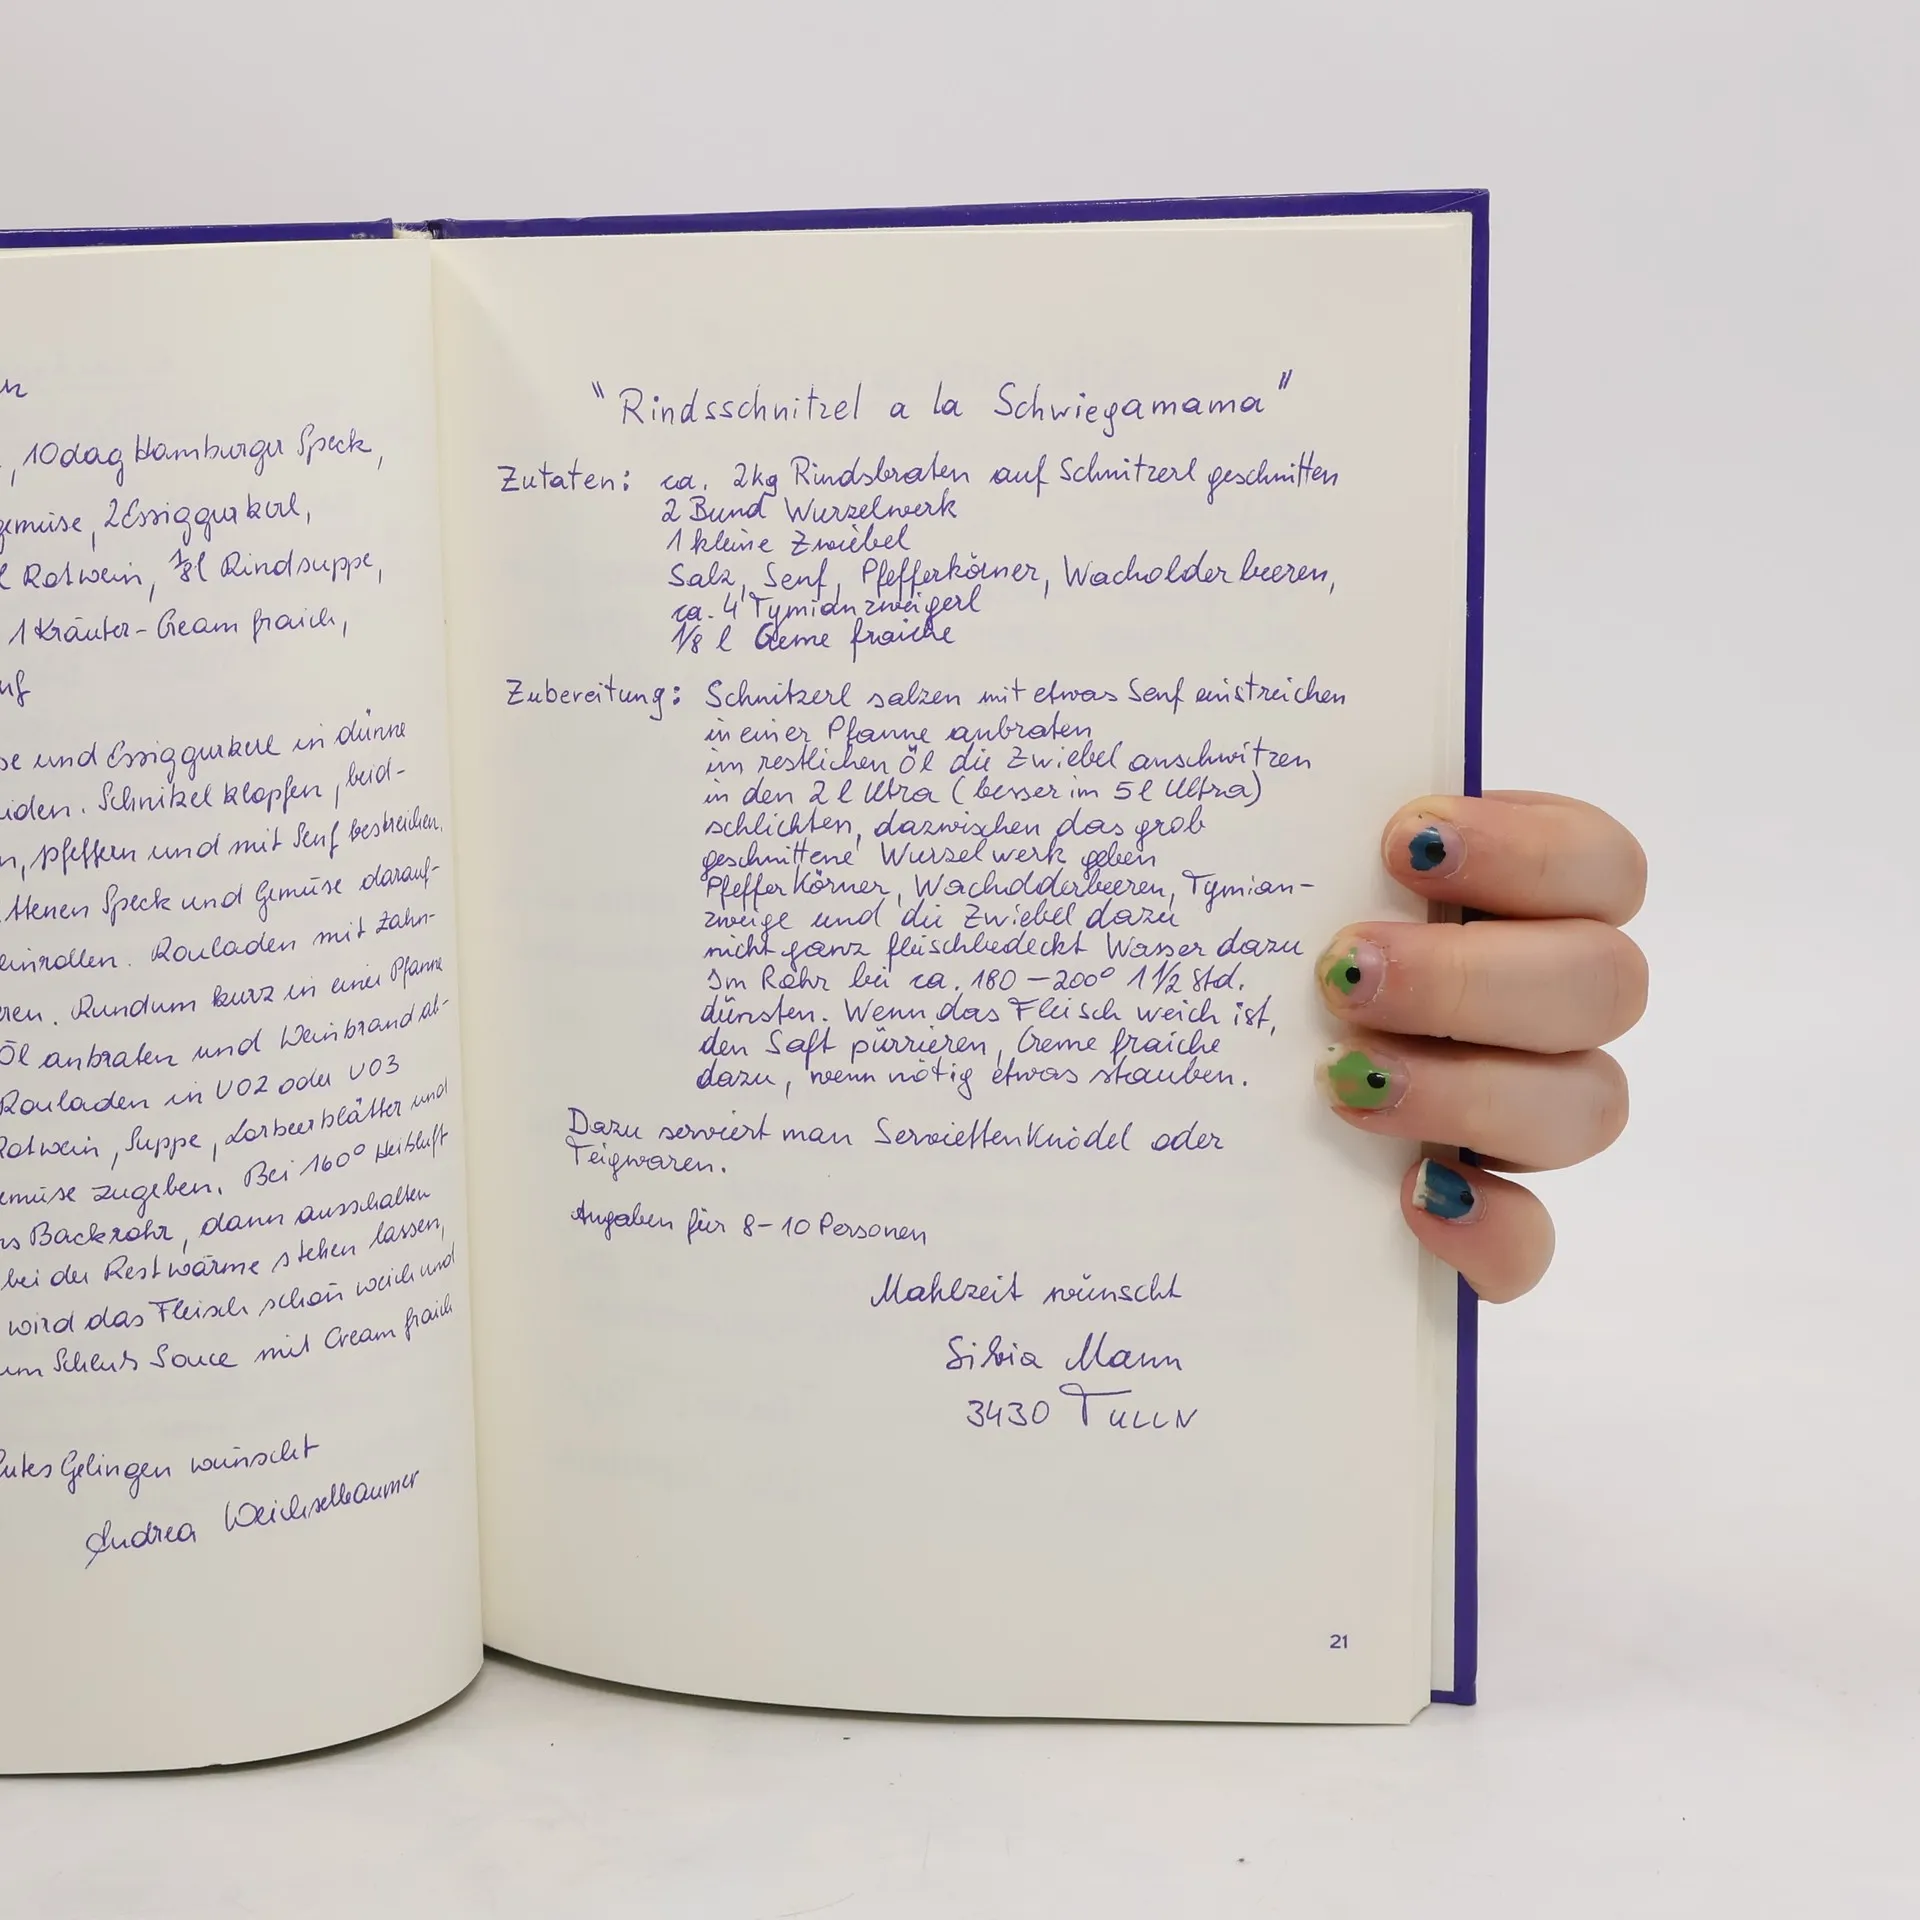 n
, 10dag Hamburger Speck,
gemüse, 2 Essiggurkerl,
l Rotwein, 1/8l Rindsuppe,
1 Kräuter-Cream fraich,
nf
se und Essiggurkerl in dünne
iden. Schnitzel klopfen, beid-
n, pfeffern und mit Senf bestreichen.
ttenen Speck und Gemüse darauf-
einrollen. Rouladen mit Zahn-
ren. Rundum kurz in einer Pfanne
Öl anbraten und Weinbrand ab-
Rouladen in VO2 oder VO3
Rotwein, Suppe, Lorbeerblätter und
emüse zugeben. Bei 160° Heißluft
ns Backrohr, dann ausschalten
bei der Restwärme stehen lassen,
wird das Fleisch schön weich und
um Schluß Souce mit Cream fraich
utes Gelingen wünscht
Andrea Weichselbaumer
"Rindsschnitzel a la Schwiegamama"
Zutaten: ca. 2kg Rindsbraten auf Schnitzerl geschnitten
2 Bund Wurzelwerk
1 kleine Zwiebel
Salz, Senf, Pfefferkörner, Wacholderbeeren,
ca. 4 Tymianzweigerl
1/8 l Creme fraiche
Zubereitung: Schnitzerl salzen mit etwas Senf einstreichen
in einer Pfanne anbraten
im restlichen Öl die Zwiebel anschwitzen
in den 2 l Ultra (besser im 5l Ultra)
schlichten, dazwischen das grob
geschnittene Wurzelwerk geben
Pfefferkörner, Wacholderbeeren, Tymian-
zweige und die Zwiebel dazu
nicht ganz fleischbedeckt Wasser dazu
Im Rohr bei ca. 180 – 200° 1 1/2 Std.
dünsten. Wenn das Fleisch weich ist,
den Saft pürrieren, Creme fraiche
dazu, wenn nötig etwas stauben.
Dazu serviert man Serviettenknödel oder
Teigwaren.
Angaben für 8-10 Personen
Mahlzeit wünscht
Silvia Mann
3430 TULLN
21